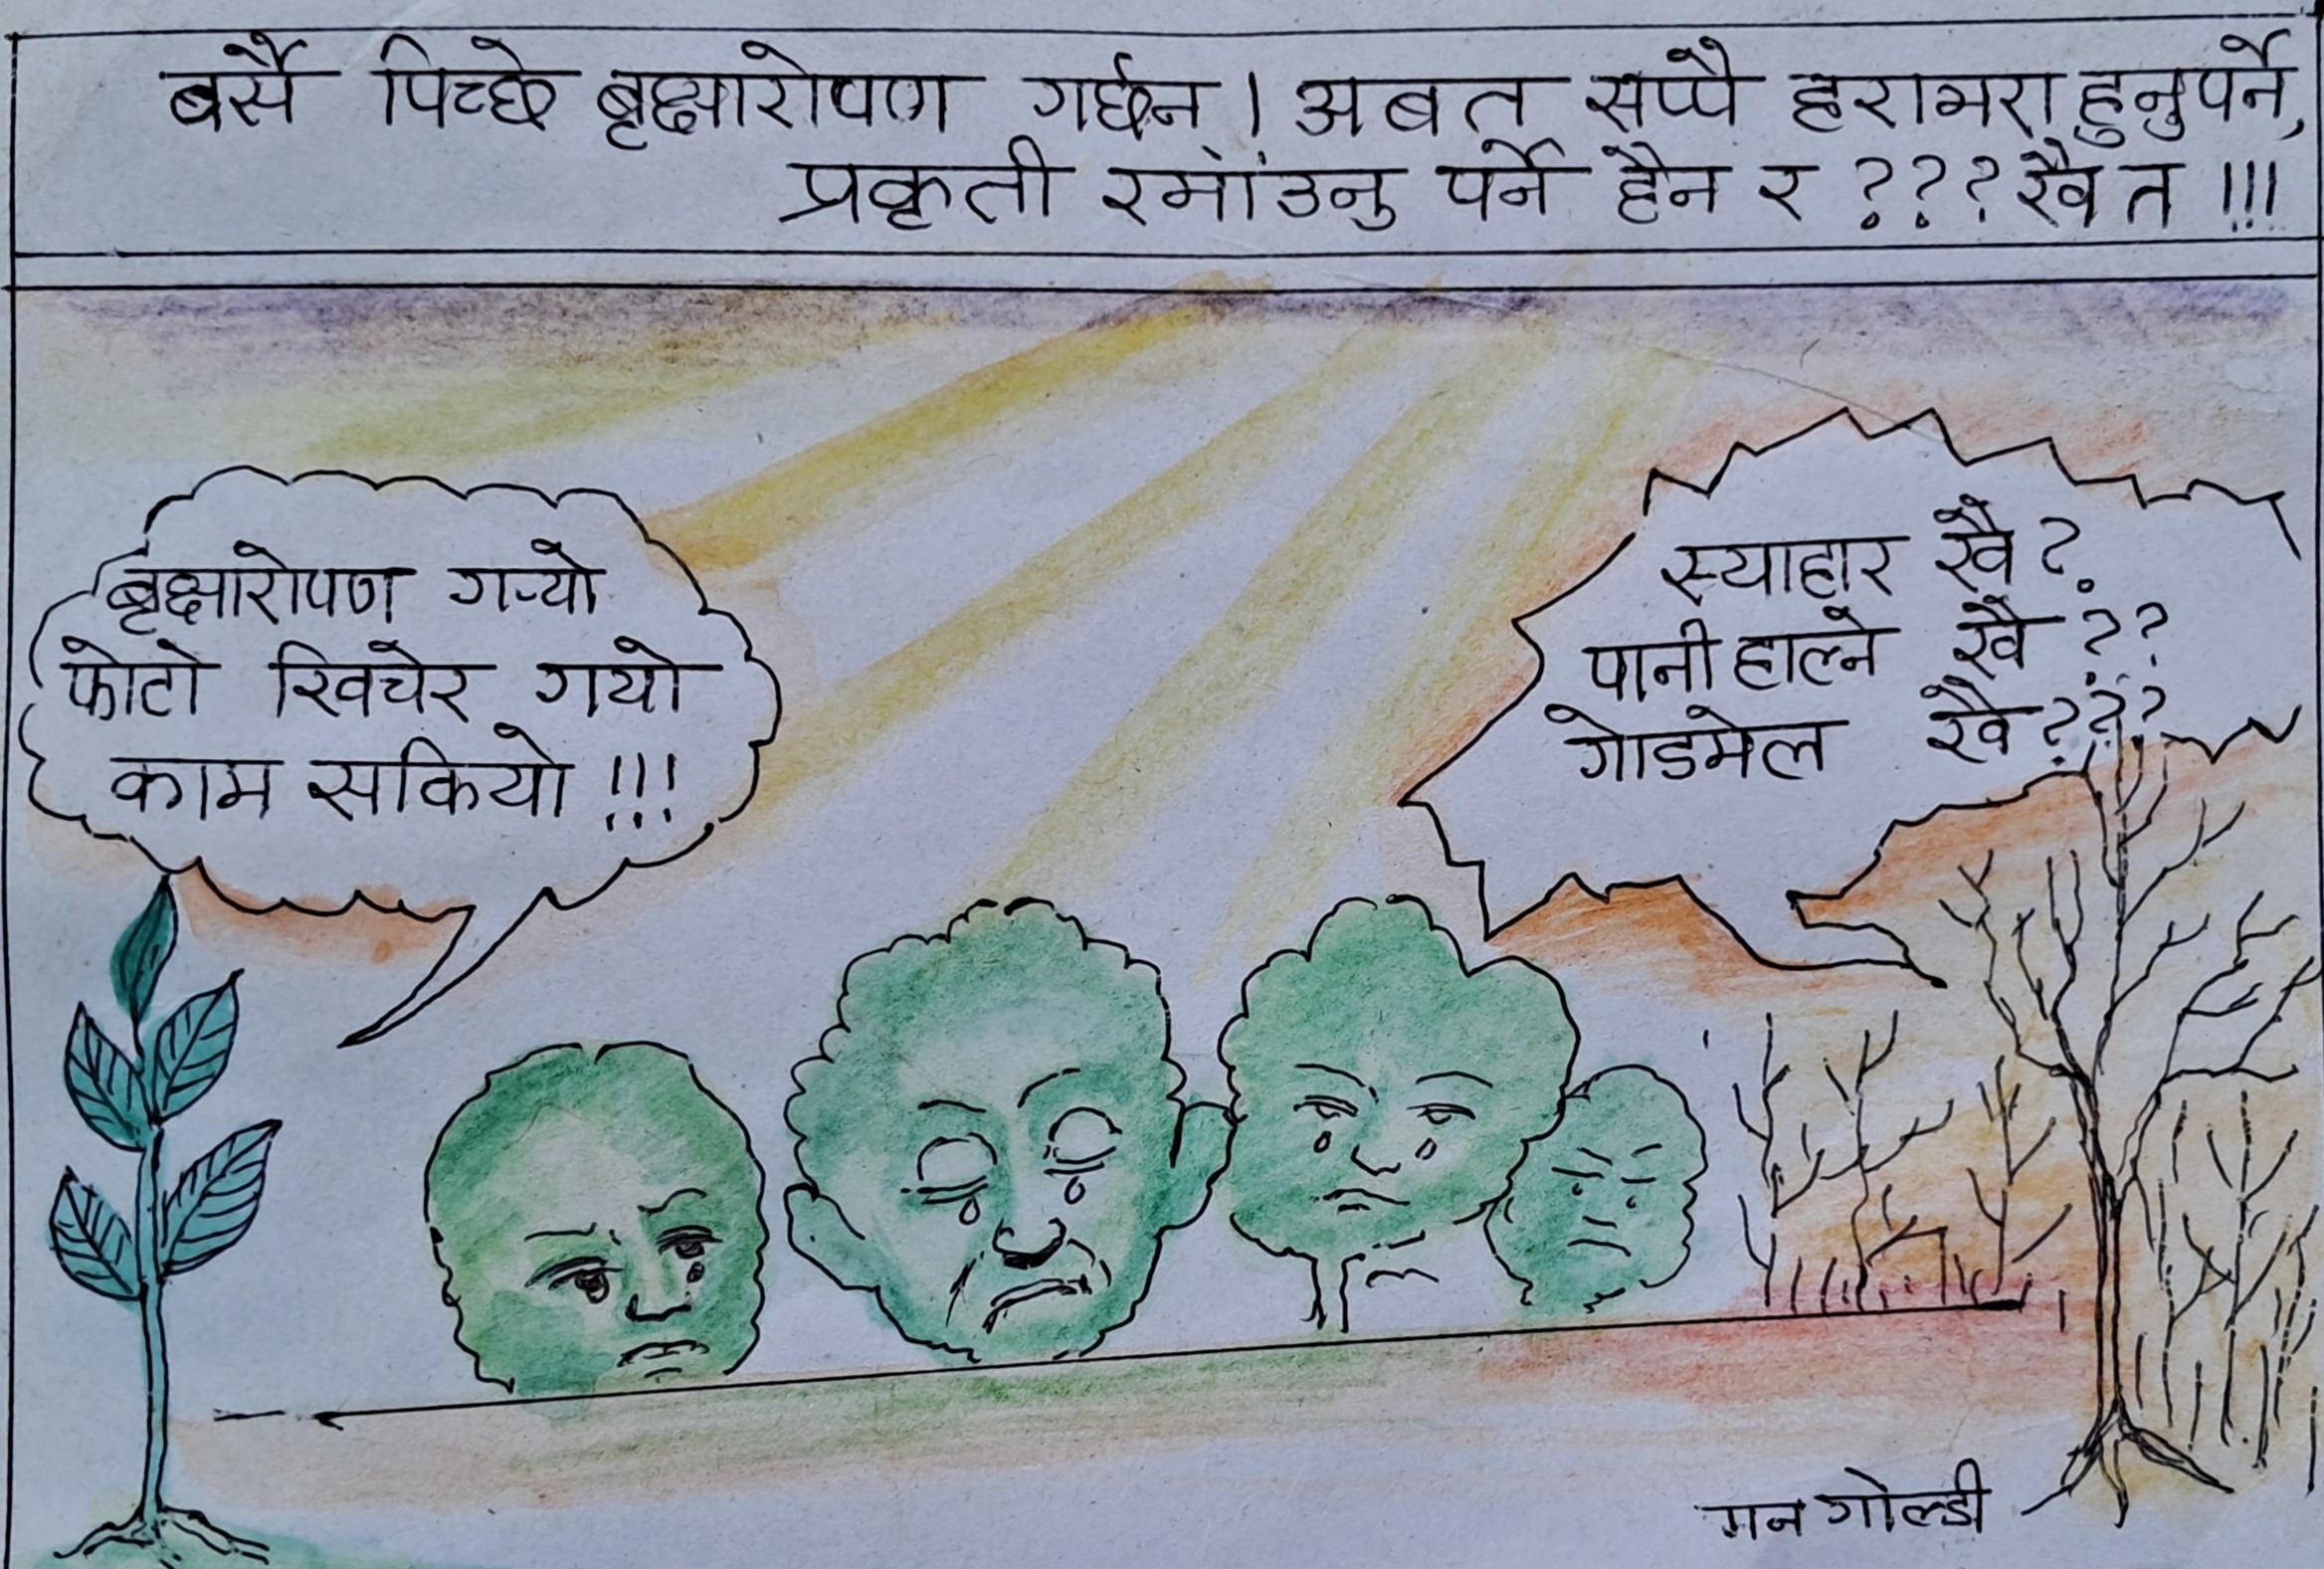 बर्सै पिच्छे बृक्षारोपण गर्छन् । अब त सप्पै हराभरा हुनुपर्ने,
प्रकृती रमांउनु पर्ने हैन र ??? खै त !!!
बृक्षारोपण गर्‍यो
फोटो खिचेर गयो
काम सकियो !!!
स्याहार खै ?
पानी हाल्ने खै ??
गोडमेल खै ???
गन गोल्डी